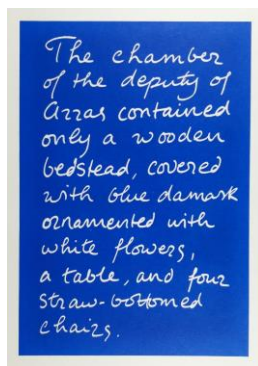 The chamber
of the deputy of
Arras contained
only a wooden
bedstead, covered
with blue damask
ornamented with
white flowers,
a table, and four
straw-bottomed
chairs.